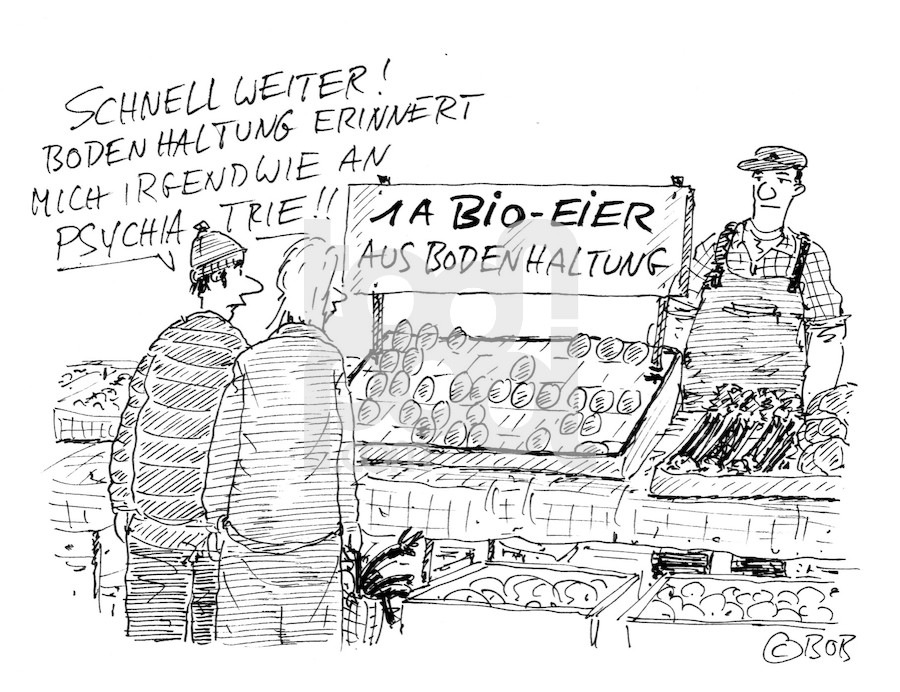 SCHNELL WEITER!
BODENHALTUNG ERINNERT
MICH IRGENDWIE AN
PSYCHIATRIE!!
1A BIO-EIER
AUS BODENHALTUNG
©BOB